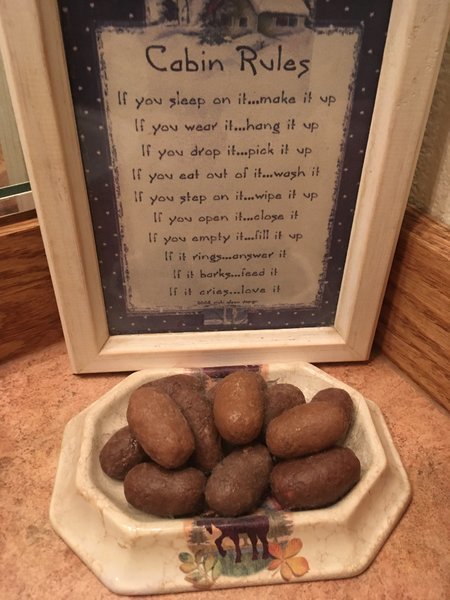 Cabin Rules
If you sleep on it...make it up
If you wear it...hang it up
If you drop it...pick it up
If you eat out of it...wash it
If you step on it...wipe it up
If you open it...close it
If you empty it...fill it up
If it rings...answer it
If it barks...feed it
If it cries...love it